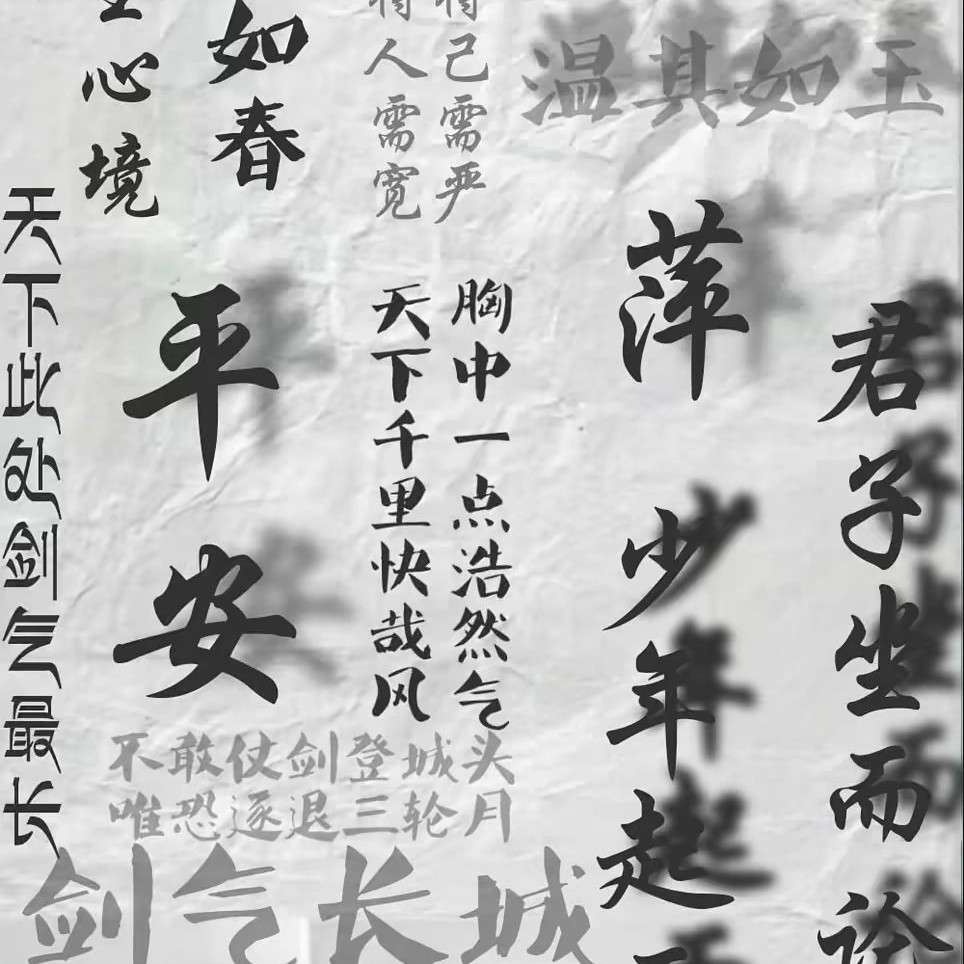 温其如玉
己需严
人需宽
如春
心境
君子坐而论
萍
少年起
胸中一点浩然气
天下千里快哉风
平安
天下此处剑气最长
不敢仗剑登城头
唯恐逐退三轮月
剑气长城